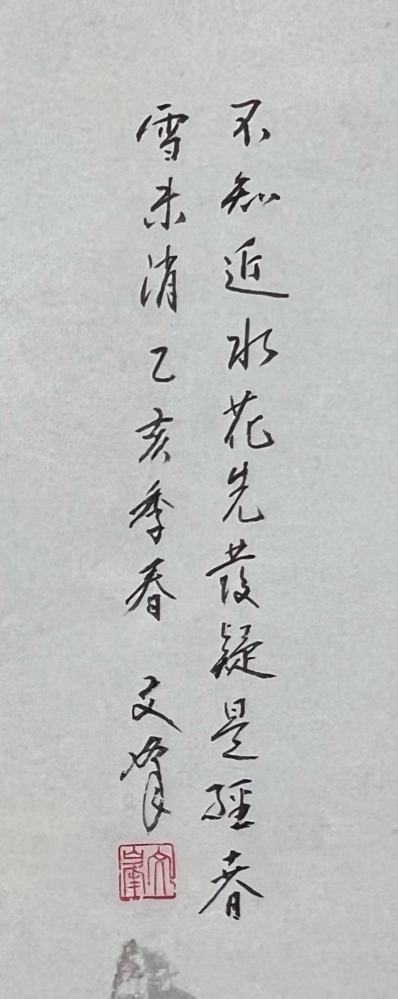 不知近水花先發疑是經春
雪未消乙亥季春 文